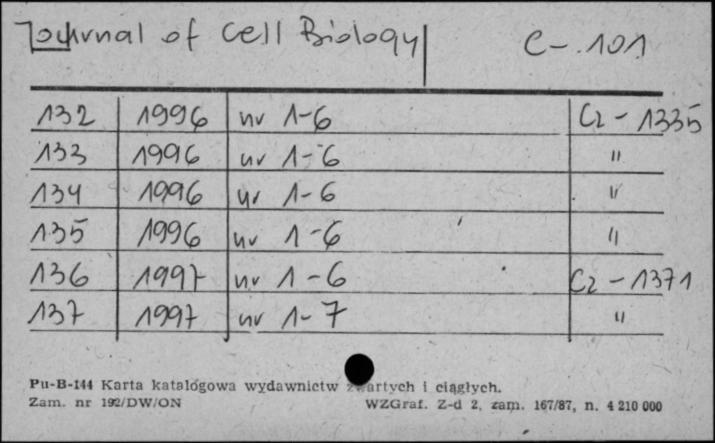 Journal of Cell Biology C-101
132 1996 nr 1-6 Cz-1335
133 1996 nr 1-6 "
134 1996 nr 1-6 "
135 1996 nr 1-6 "
136 1997 nr 1-6 Cz-1371
137 1997 nr 1-7 "
Pu-B-144 Karta katalogowa wydawnictw zwartych i ciągłych.
Zam. nr 192/DW/ON WZGraf. Z-d 2, zam. 167/87, n. 4 210 000